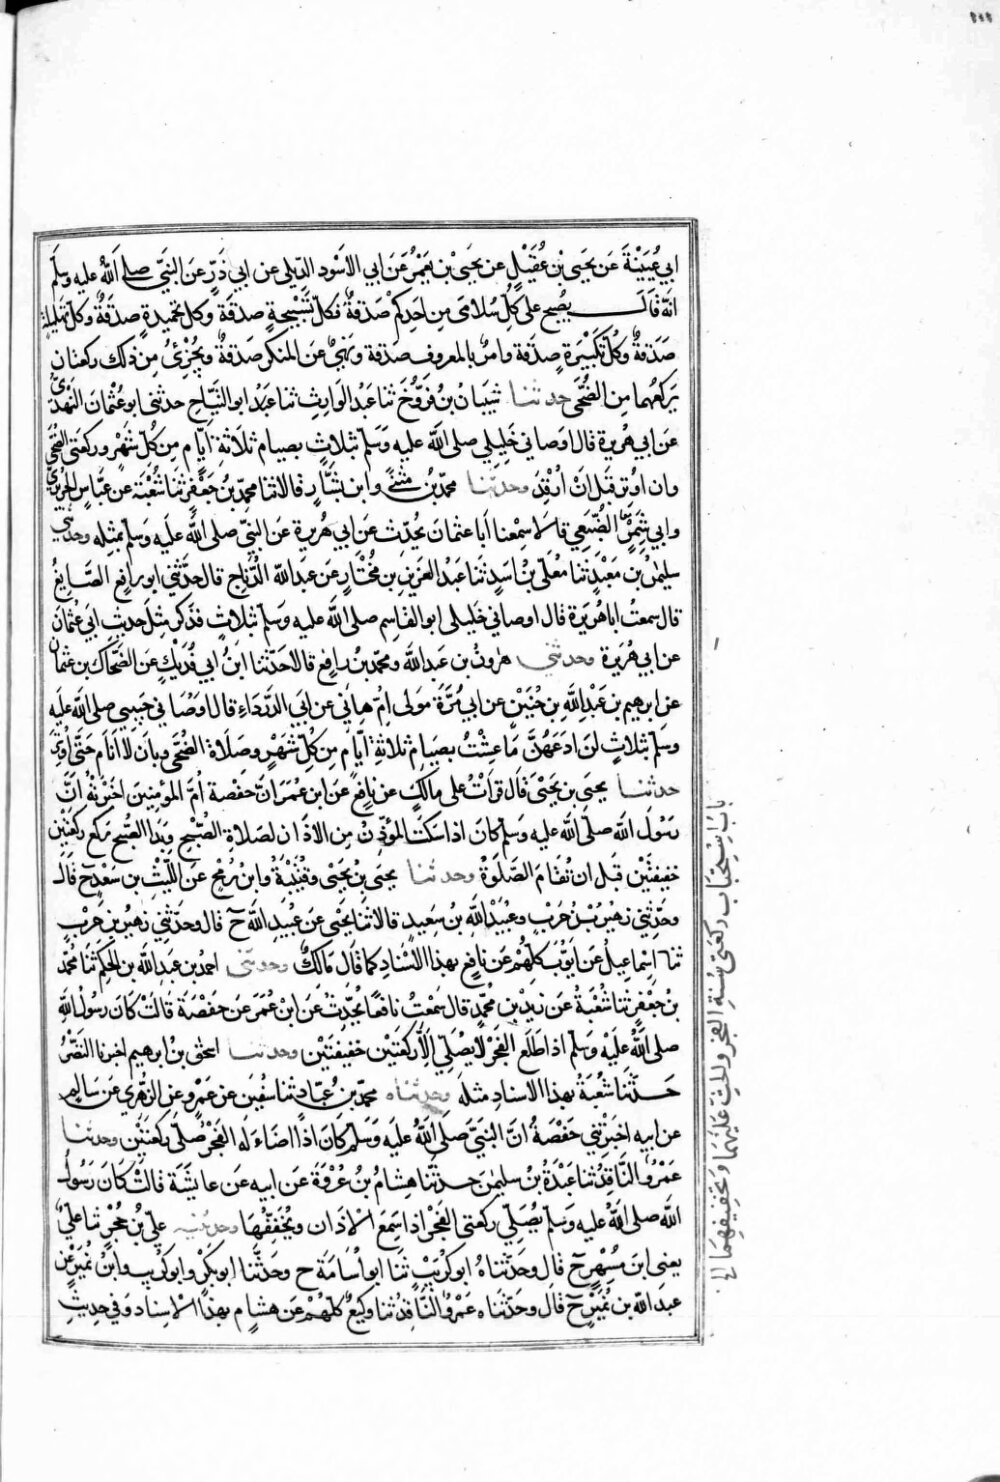 ابي عُيَيْنَةَ عَن يَحيَى بْن عُقَيْلٍ عن يحيَى بْن يَعمَرُ عَن ابي الاَسْود الدِّيلى عن ابي ذَرٍّ عَن النَّبيّ صلى اللهُ عليه وسلم
انّه قالَ يصُبح على كُلِّ سُلامَى مِن احَدِكم صَدقةٌ فكلّ تَسبِيحةٍ صَدقَة وكل تحميدةٍ صدقَةٌ وكلّ تَهليلةٍ
صَدَقةٌ وكُلّ تكبيْرةٍ صِدَقة وامرٌ بالمعروف صدقة ونهيٌ عَن المُنكرِ صدقةٌ ويُجْزِئُ مِن ذلك ركعتان
يَركعُهما مِن الضُّحَى حدثنا شَيبَان بْن فرّوخَ ثنا عَبدُ الوَارِثِ ثنا عَبَدُ ابو التّيّاحِ حدثنى ابو عُثمَانَ النَّهدىّ
عَن ابي هُريرة قال اوصَاني خَلِيلي صلى الله عليه وَسَلّم بثلاثٍ بصيام ثَلَاثةِ ايّامٍ مِن كُلِّ شَهْرٍ وركعتى الضُّحَى
وان اُوتِرَ قَبل انْ اَرقُدَ وحدثنا محمّدُ بن مُثنَّى وابن بَشَّارٍ قالا ثنا محمّد بن جَعفَرٍ ثنا شُعبَة عن عبّاسٍ الجُريرىّ
وابي شِمْرٍ الضُّبَعي قالا سمِعنا اَبا عثمان يحُدّث عَن ابي هريرة عَن النبيّ صلى الله عليه وَسَلم بمثله وحدثني
سليمٰن بن مَعْبَدٍ ثنا مُعلَّى بن اسَدٍ ثَنا عَبدُ العَزيز بن مُختَارٍ عَن عبدالله الدّاناجِ قال حدَّثني ابو رافِعٍ الصّايِغُ
قال سمعتُ ابا هُريرة قال اوصاني خليلى ابو القاسِم صلى الله عليه وَسَلم بثلاثٍ فذَكر مِثلَ حديثِ ابي عُثمٰانَ
عن ابي هُريرة وحدثني هٰرون بن عَبدالله ومحمّد بن رافِعٍ قالا حَدّثنا ابنُ ابي فُدَيْكٍ عن الضّحّاك بن عثمان
عن ابرهيم بن عَبْدِاللهِ بن حُنَيْنٍ عن ابي مُرَّةَ مَولى اُمّ هَانئٍ عن ابي الدّرداءِ قال اوصَاني حَبيبى صلى الله عليه
وَسلم بثلاثٍ لن ادعَهُنَّ مَا عِشتُ بصِيام ثلاثةِ ايّام مِن كلّ شهرٍ وصَلاة الضُّحَى وبان لا انام حتّى اُوتِرَ
حدثنا يحيى بن يحيَى قال قراتُ على مالكٍ عَن نافعٍ عَن ابن عُمَر انّ حَفصة امَّ المومِنينَ اخبرتهُ انّ
رَسُولَ الله صلّى الله عليه وسلم كان اذا سَكَتَ المؤذّنُ مِن الاذان لصَلاةِ الصّبح وبَدا الصّبح ركع ركعتَينِ
خفيفتَيْن قبل ان تُقامَ الصَّلٰوةُ وحدثنا يحيَى بن يحيى وقُتَيْبةُ وابن رُمْحٍ عن اللّيثِ بن سَعْدٍ ح قالَ
وحدّثني زهَيرُ بنُ حَربٍ وعُبَيدُ اللهِ بن سَعيدٍ قالا ثنا يحيى عَن عُبَيدِ الله ح قال وحدّثني زهير بن حَربٍ
ثنا اِسْماعِيل عَن ايّوبَ كلُّهُم عَن نافعٍ بهذا الاسْناد كما قال مَالكٌ وحدثنى احمد بن عَبدالله بن الحكم ثنا محمّد
بنُ جَعْفرٍ ثنا شُعْبَةُ عَن زَيدِ بن محمّدٍ قال سَمعتُ نافعًا يُحدِّث عَن ابن عُمَر عَن حَفصَة قالتْ كان رسُولُ اللهِ
صلى اللهُ عليه وَسَلّم اذا طلعَ الفَجْر لا يُصَلّي اِلّا ركعَتَيْن خفيفتَيْن وحدثنا اسحٰق بن ابرهيم اخبرنا النّضرُ
حَدّثنا شُعبَةُ بهذا الاسناد مثلَه وحدثنا محمّد بن عُبّاد ثنا سُفين عَن عَمْرٍو عن الزّهري عَن سَالِمٍ
عن ابيه اخبَرتْني حَفصَةُ انّ النّبيّ صَلى اللهُ عليه وسَلم كَان اذا اَضاءَ لَه الفَجْرُ صَلّى ركعتَيْن وحدثنا
عَمْرٌو النّاقِدُ ثنا عَبْدَةُ بن سليمٰن حدثنا هِشامُ بن عُرْوةَ عَن ابيه عَن عايشَة قالتْ كان رَسُولُ
الله صلى اللهُ عليه وسَلم يُصَلّي ركعتي الفَجْر اذا سَمِعَ الاذان ويُخَفِّفُها وحدثنيه عليّ بن حُجْرٍ ثنا عليٌّ
يعنى ابن مُسْهِرٍ ح قال وحدّثناهُ ابو كُرَيْبٍ ثنا ابو اُسَامَةَ ح وحَدّثنا ابو بكرٍ وابو كريبٍ وابن نُمَيرٍ عن
عبدالله بن نُمَيرٍ ح قال وحدّثناه عَمْرٌو النّاقِدُ ثنا وكيعٌ كلّهُم عَن هشامٍ بهذا الاسناد وفي حديثِ
بابُ اسْتِحبَاب ركعَتى سُنة الفجر والحثِّ عَلَيْهمَا وتخفيفهما